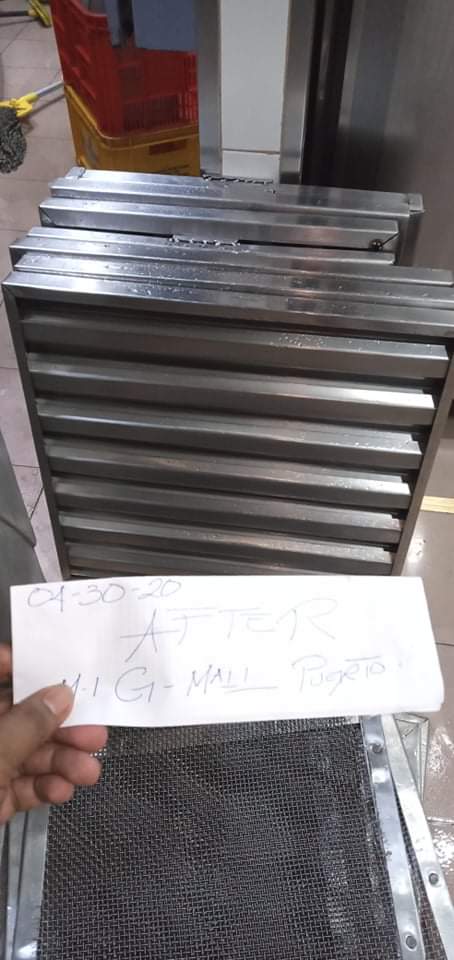 04-30-20
AFTER
M.I G-MALL Puerto